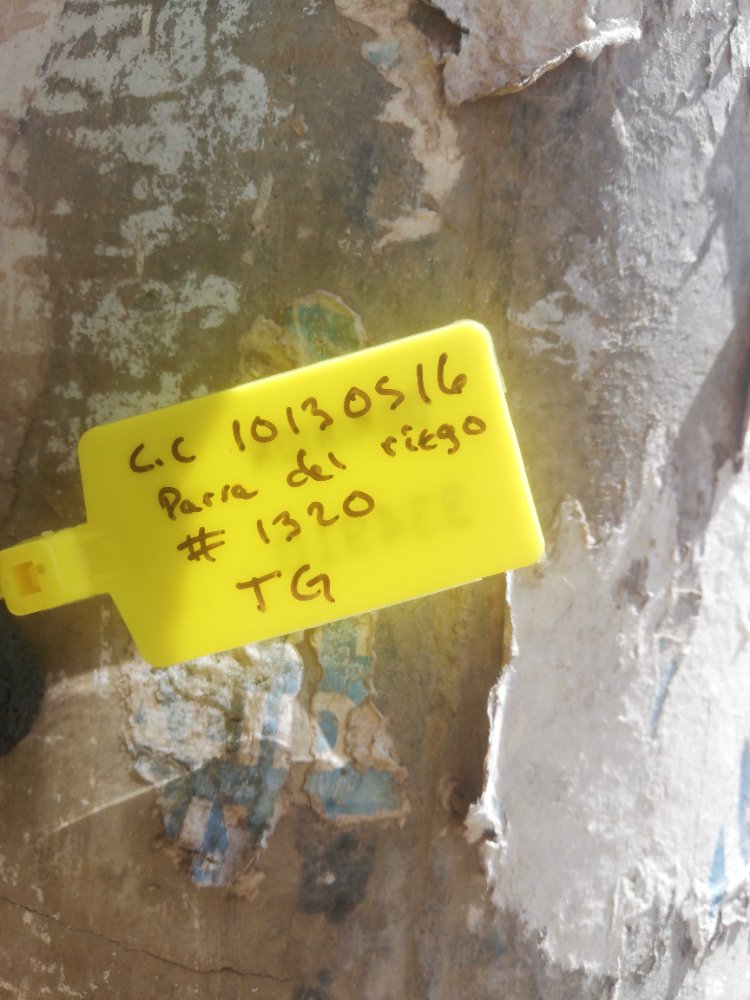 C.C 10130516
Parra del riego
# 1320
TG